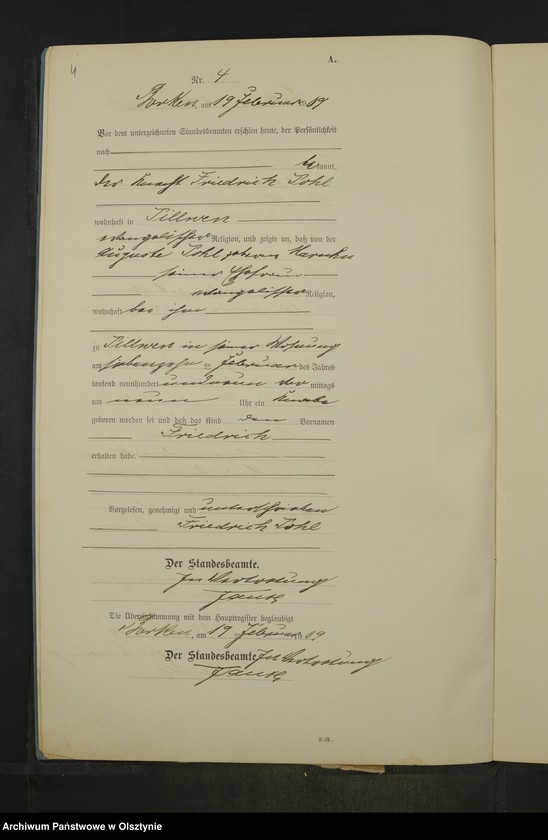 4
A.
Nr. 4
Borken, am 19 Februar 1909
Vor dem unterzeichneten Standesbeamten erschien heute, der Persönlichkeit
nach
be kannt,
der Knecht Friedrich Pohl
wohnhaft in Tillwen
evangelischer Religion, und zeigte an, daß von der
Auguste Pohl geborene
seiner Ehefrau
evangelischer Religion,
wohnhaft bei ihm
zu Tillwen in seiner Wohnung
am siebenzehn ten Februar des Jahres
tausend neunhundert und neun Vor mittags
um neun Uhr ein Knabe
geboren worden sei und daß das Kind den Vornamen
Friedrich
erhalten habe.
Vorgelesen, genehmigt und unterschrieben
Friedrich Pohl
Der Standesbeamte.
In Vertretung
Die Übereinstimmung mit dem Hauptregister beglaubigt
Borken, am 19 Februar 1909
Der Standesbeamte. In Vertretung
Archiwum Państwowe w Olsztynie